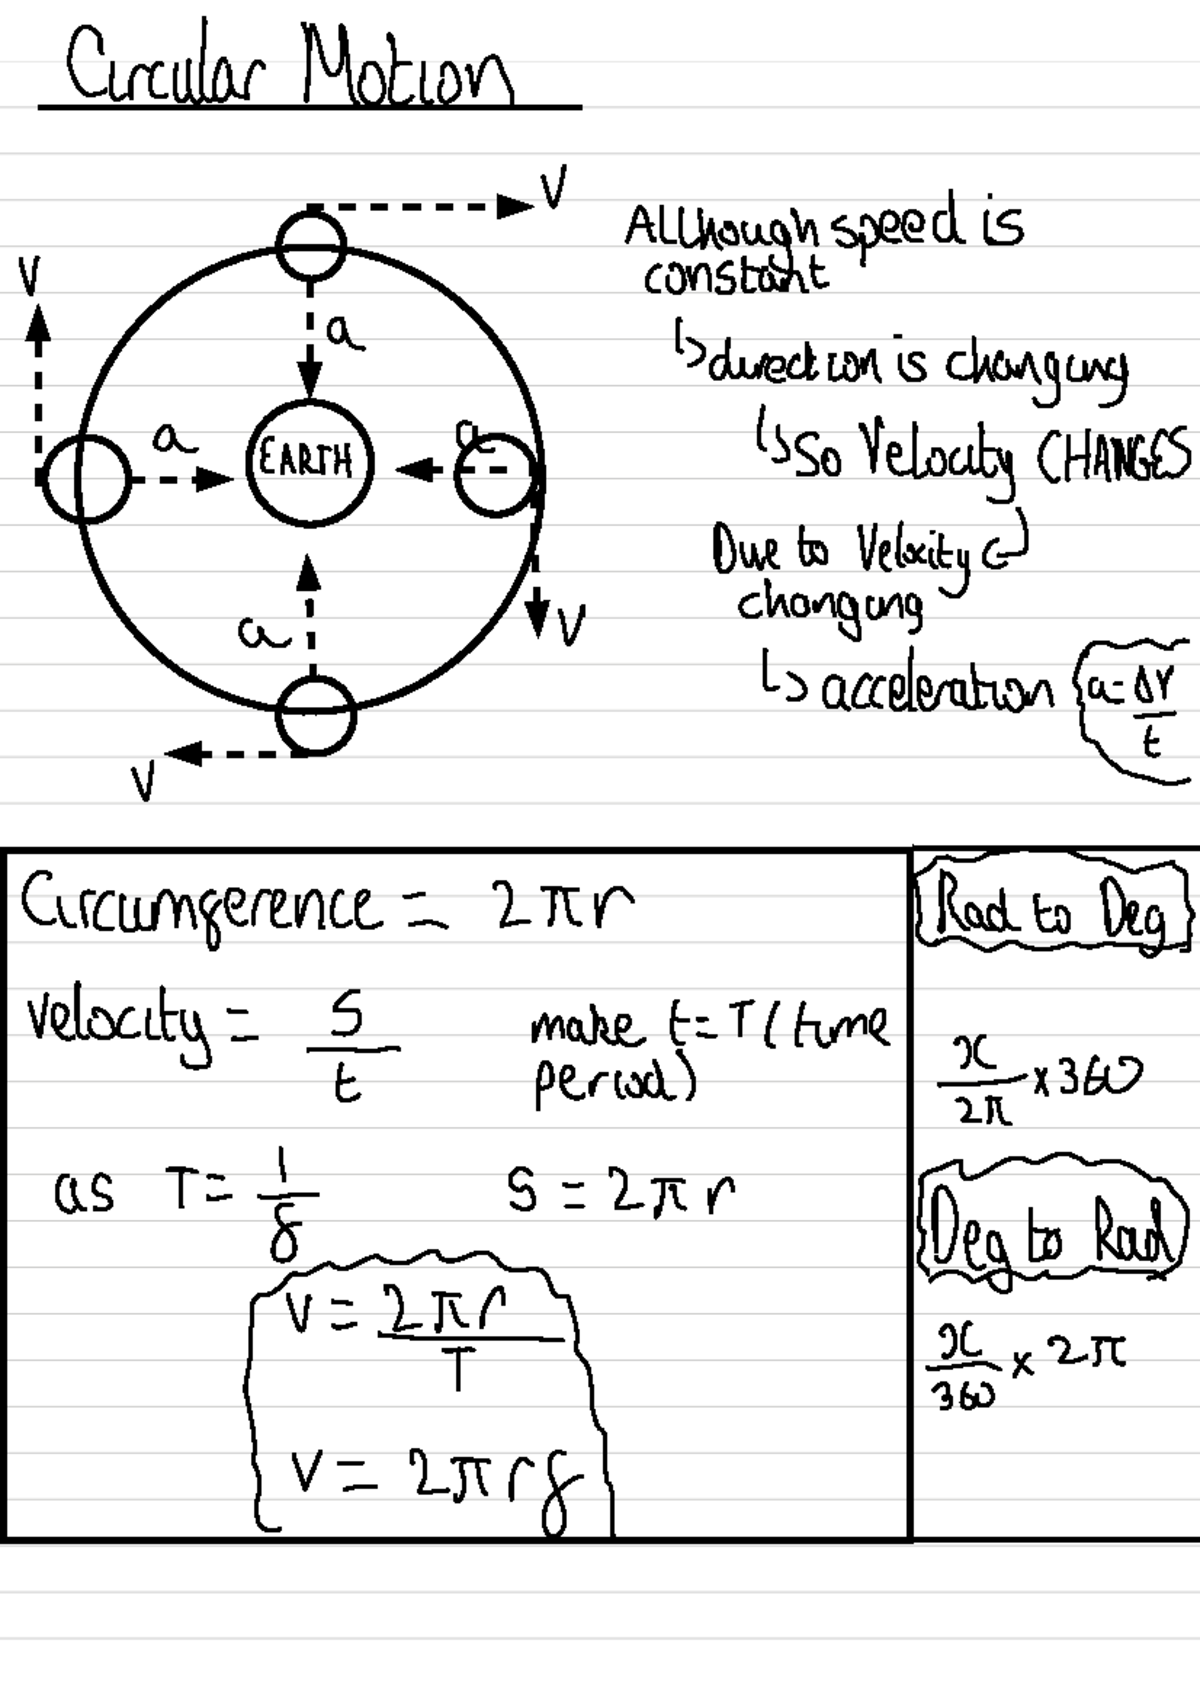 Circular Motion
V
V
a
a
EARTH
a
a
V
V
Although speed is
constant
↳ direction is changing
↳ So Velocity CHANGES
Due to Velocity
changing
↳ acceleration a = Δv/t
Circumference = 2πr
Velocity = s/t
make t = T (time
period)
as T = 1/f
s = 2πr
v = 2πr/T
v = 2πrf
Rad to Deg
x/2π × 360
Deg to Rad
x/360 × 2π